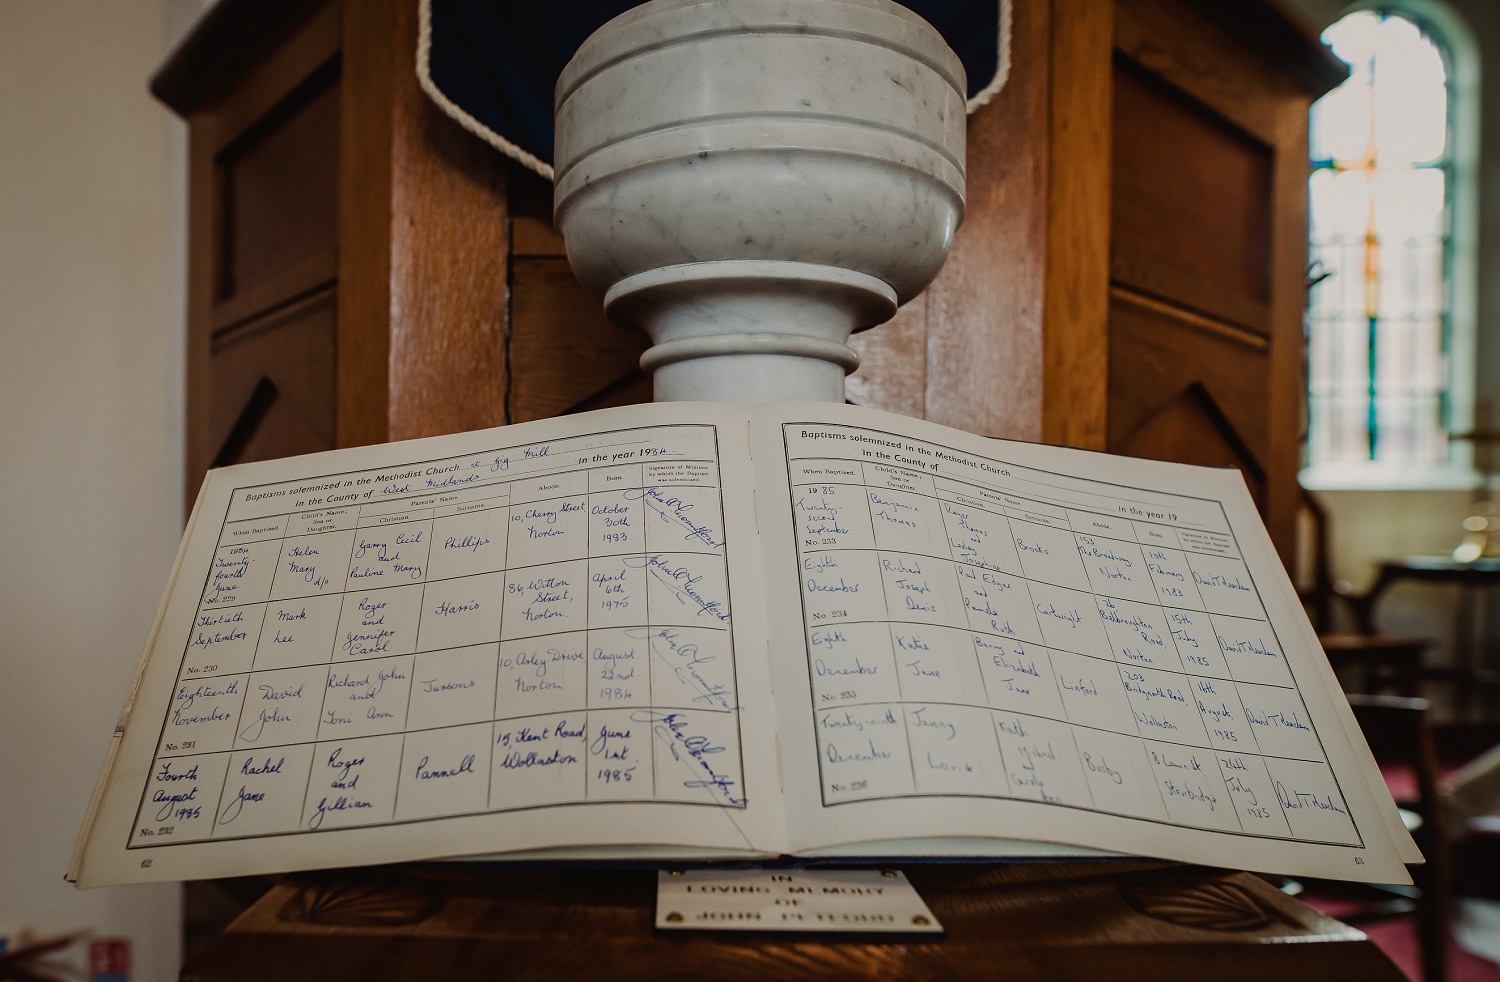 Baptisms solemnized in the Methodist Church at Gig Mill in the year 1984.
in the County of West Midlands
When Baptized.
Child's Name;
Son or
Daughter.
Parents' Name.
Christian.
Surname.
Abode.
Born.
Signature of Minister
by whom the Baptism
was solemnized
1984
Twenty-
fourth
June
No. 229
Helen
Mary
d/o
Garry Cecil
and
Pauline Mary
Phillips
10, Cherry Street,
Norton
October
30th
1983
Thirtieth
September
No. 230
Mark
Lee
Roger
and
Jennifer
Carol
Harris
86, Witton
Street,
Norton.
April
6th
1975
Eighteenth
November
No. 231
David
John
Richard John
and
Toni Ann
10, Arley Drive
Norton
August
22nd.
1984
Fourth
August
1985
No. 232
Rachel
Jane
Roger
and
Gillian
Pannell
15, Kent Road,
Wollaston
June
1st.
1985.
62
Baptisms solemnized in the Methodist Church
in the County of
in the year 19
When Baptized.
Child's Name;
Son or
Daughter.
Parents' Name.
Christian.
Surname.
Abode.
Born.
Signature of Minister
by whom the Baptism
was solemnized
1985
Twenty-
second
September
No. 233
Benjamin
Thomas
Roger
Thomas
and
Lesley
Josephine
Brooks
153
The Broadway
Norton
10th
February
1983
Eighth
December
No. 234
Richard
Joseph
Denis
Paul Edgar
and
Pamela
Ruth
Cartwright
26
Belbroughton
Road,
Norton
15th
July
1985
Eighth
December
No. 235
Katie
Jane
Barry and
Elizabeth
Jane
Linford
203
Bridgnorth Road,
Wollaston
16th
August.
1985
Twenty-ninth
December
No. 236
Jenny
Louise
Keith
and
Carole
8
Stourbridge
July
1985
63
IN
LOVING MEMORY
OF
JOHN PETFORD